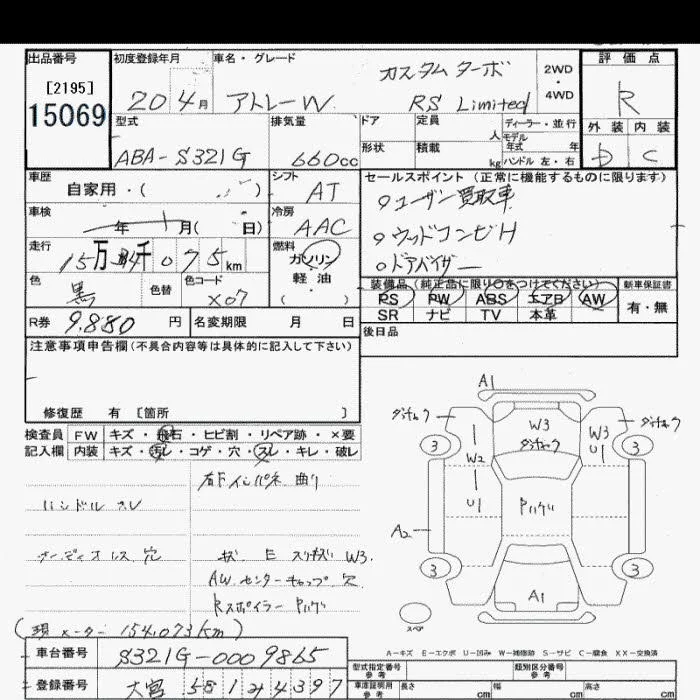 出品番号
[2195]
15069
初度登録年月
20年4月
車名・グレード
カスタムターボ
アトレーW RS Limited
2WD
・
4WD
評価点
R
外装 内装
D C
型式
ABA-S321G
排気量
660cc
ドア
定員
人
ディーラー・並行
モデル年式 年
形状
積載
kg
ハンドル 左・右
車歴
自家用・( )
シフト
AT
セールスポイント (正常に機能するものに限ります)
○ユーザー買取車
○ウッドコンビH
○ドアバイザー
車検
年 月( 日)
冷房
AAC
走行
15万4千075km
燃料
ガソリン
軽油
・
( )
色
黒
色替
色コード
X07
装備品 (純正品に限り○をつけてください)
新車保証書
PS PW ABS エアB AW
SR ナビ TV 本革
有・無
R券 9.880円
名変期限 月 日
後日品
注意事項申告欄(不具合内容等は具体的に記入して下さい)
修復歴 有 [箇所 ]
検査員記入欄
FW キズ・飛石・ヒビ割・リペア跡・×要
内装 キズ・汚レ・コゲ・穴・スレ・キレ・破レ
右Fインパネ曲り
ハンドルスレ
オーディオレス 穴
W3
AWセンターキャップ欠
Rスポイラー
(現メーター 154,073km)
車台番号
S321G-0009865
登録番号
大宮 581 4397
A1
W3
W3
U1
W2
U1
A2
A1
3
3
3
3
スペア
A-キズ E-エクボ U-凹み W-補修跡 S-サビ C-腐食 XX-交換済
型式指定番号
参考
類別区分番号
参考
車庫証明用
参考
長さ cm
幅 cm
高さ cm